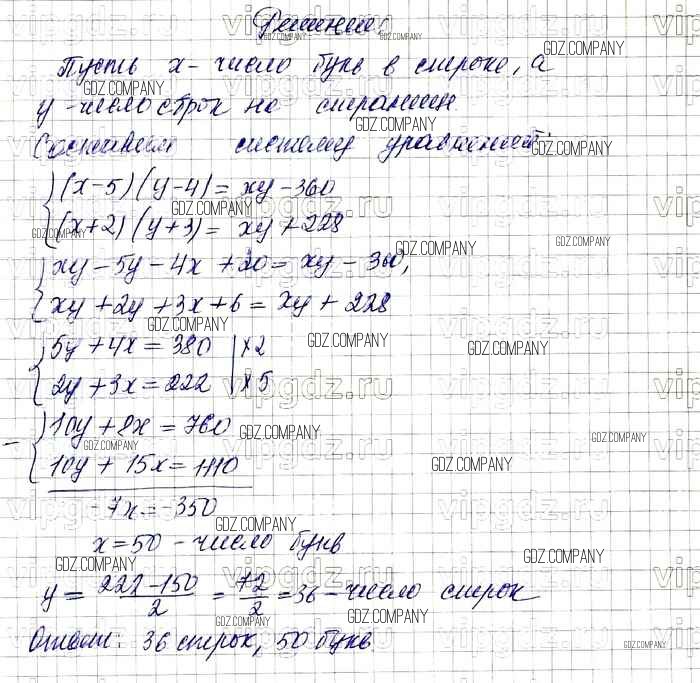 Решение:
Пусть x - число букв в строке, а
y - число строк на странице
Составим систему уравнений:
(x-5)(y-4) = xy - 360
(x+2)(y+3) = xy + 228
xy - 5y - 4x + 20 = xy - 360,
xy + 2y + 3x + 6 = xy + 228
5y + 4x = 380 | x2
2y + 3x = 222 | x5
10y + 8x = 760
- 10y + 15x = 1110
-7x = -350
x = 50 - число букв
y = (222-150)/2 = 72/2 = 36 - число строк
Ответ: 36 строк, 50 букв
GDZ.COMPANY
vipgdz.ru